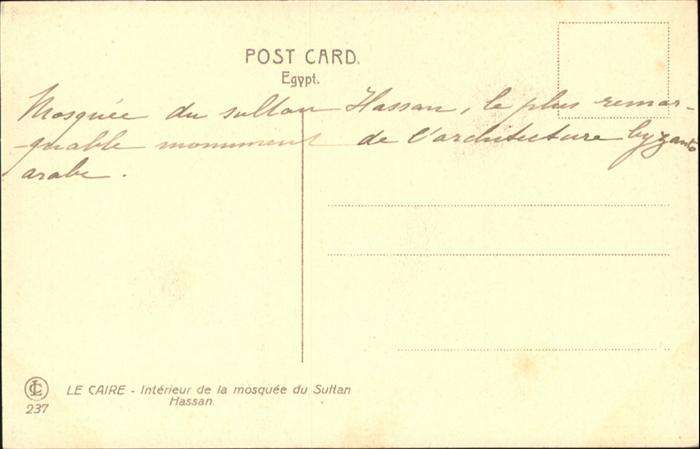 POST CARD.
Egypt.
Mosquée du sultan Hassan, le plus remar-
quable monument de l'architecture byzanto
arabe.
LE CAIRE - Intérieur de la mosquée du Sultan
Hassan.
LC
237